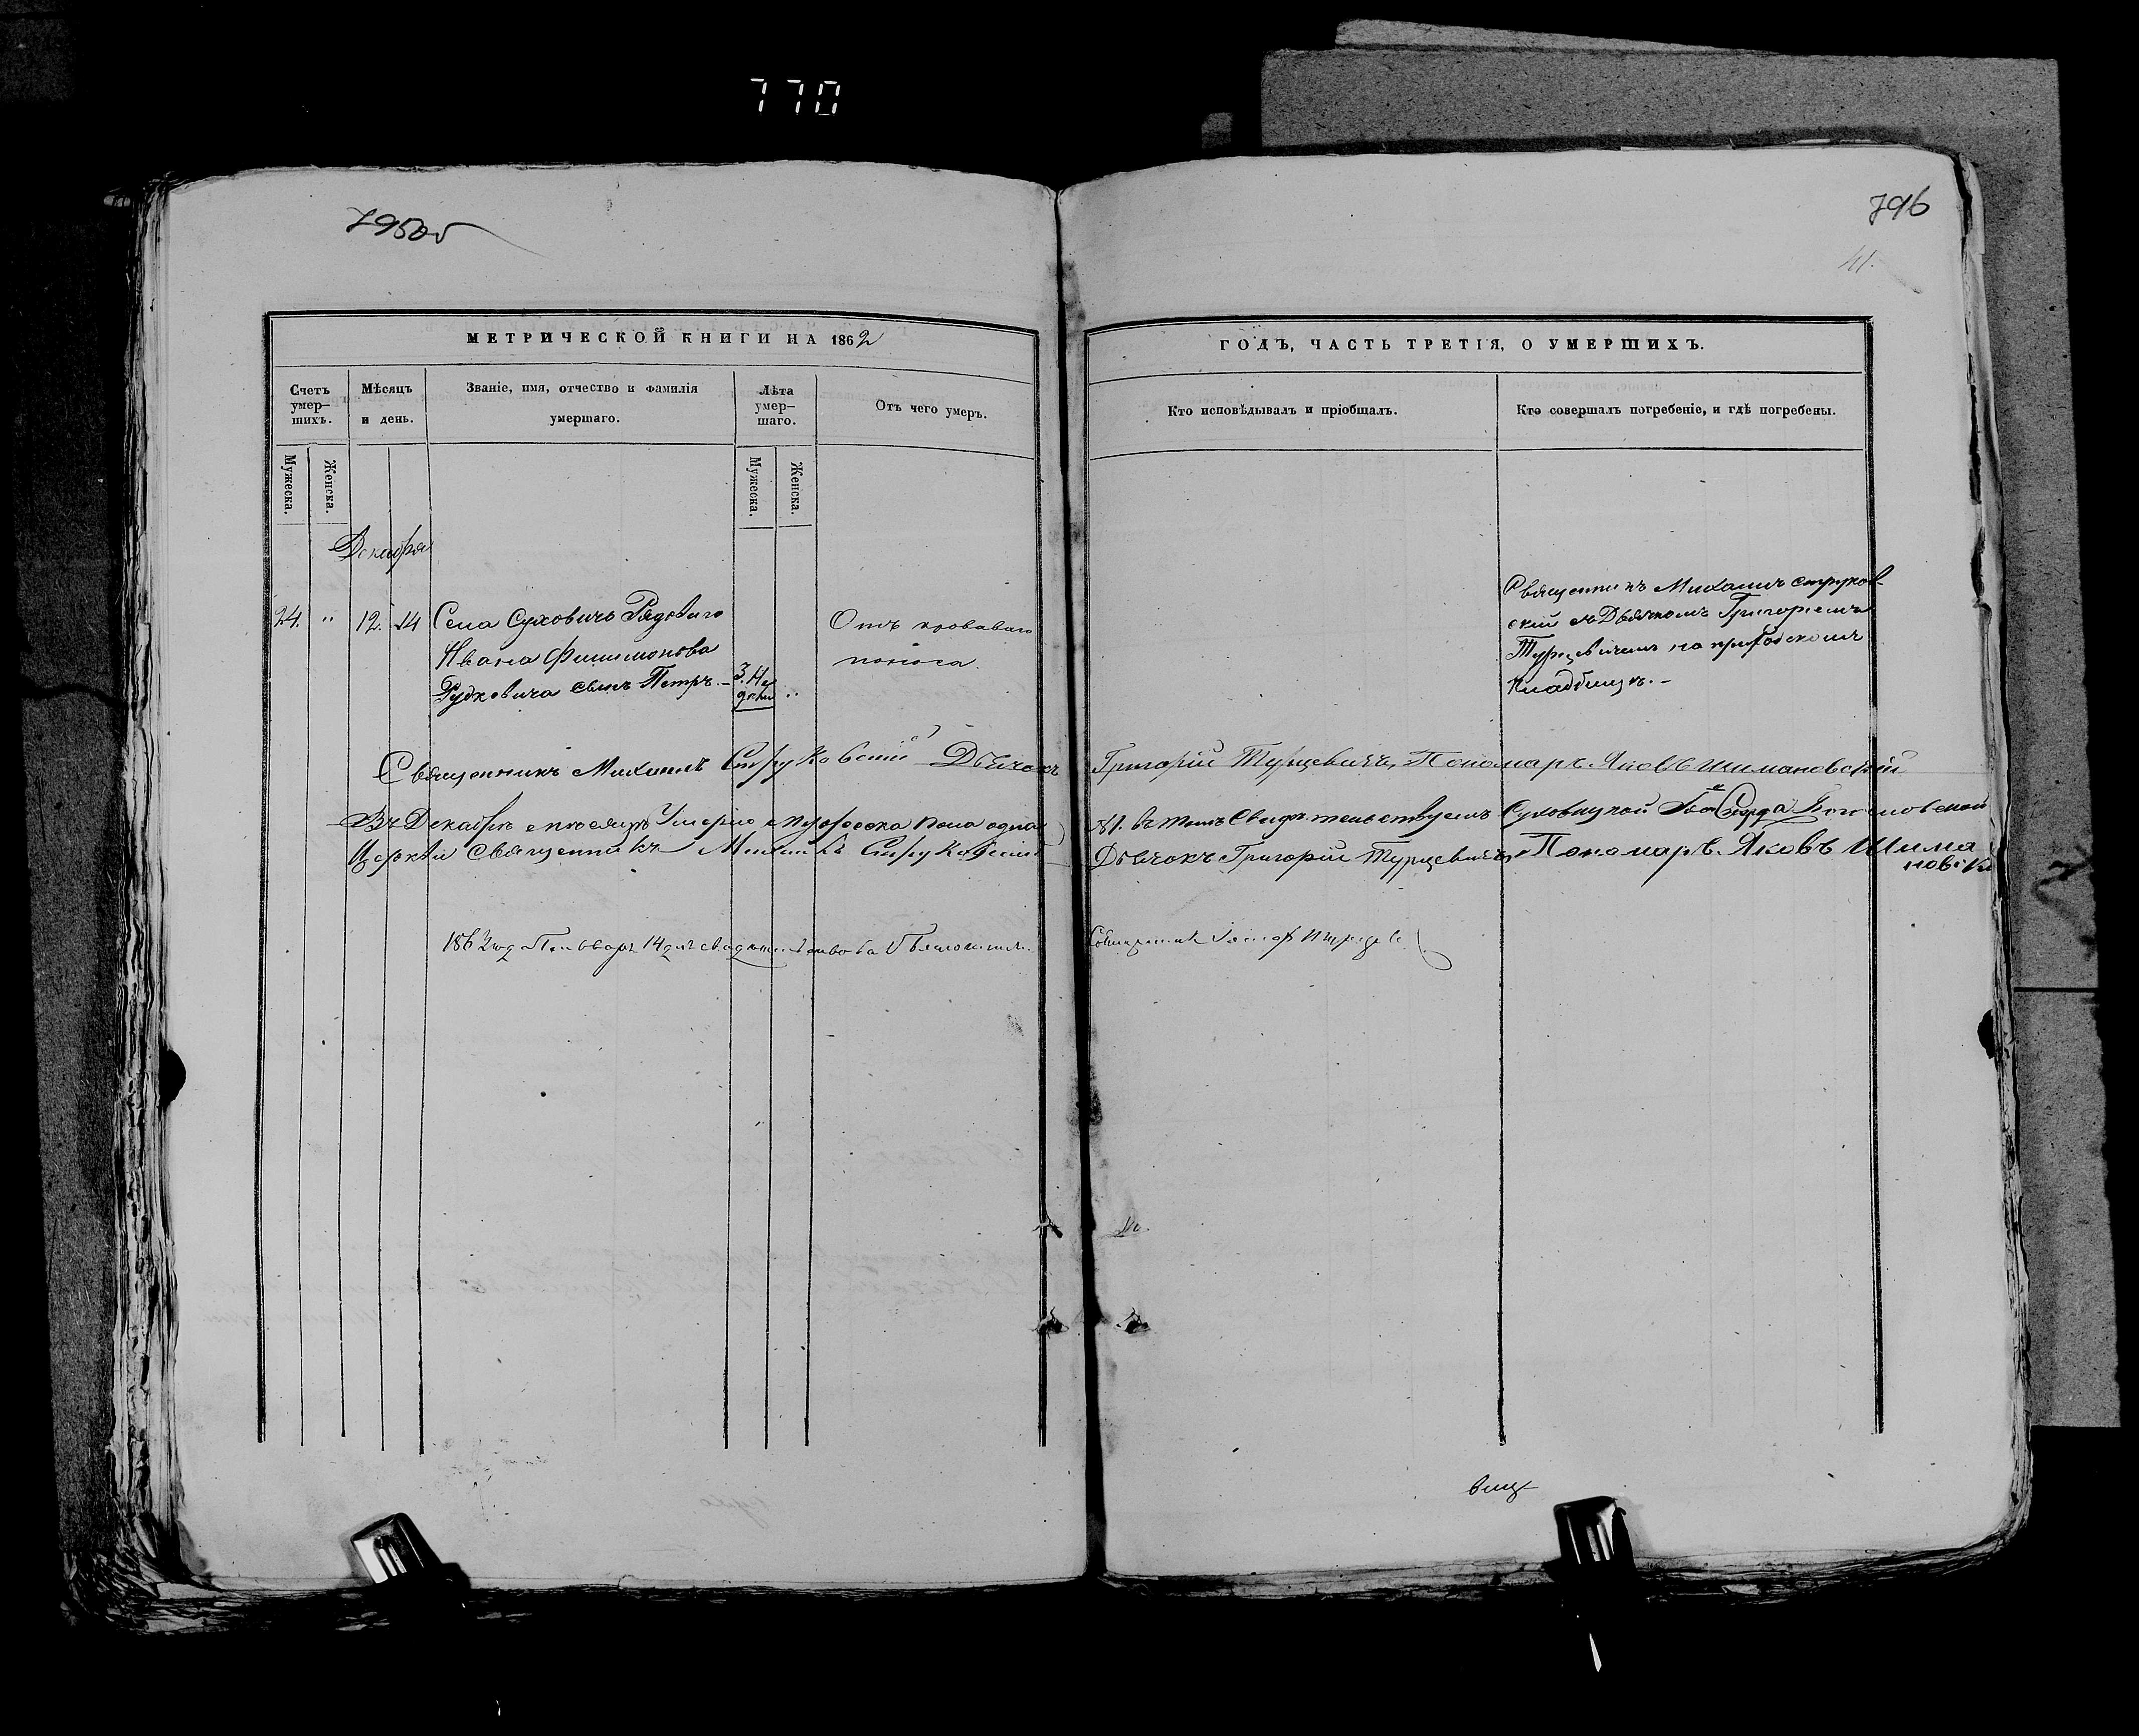 770
795об
796
41.
МЕТРИЧЕСКОЙ КНИГИ НА 1862
ГОДЪ, ЧАСТЬ ТРЕТІЯ, О УМЕРШИХЪ.
Счетъ умер-
шихъ.
Мѣсяцъ
и день.
Званіе, имя, отчество и фамилія
умершаго.
Лѣта
умер-
шаго.
Отъ чего умеръ.
Кто исповѣдывалъ и пріобщалъ.
Кто совершалъ погребеніе, и гдѣ погребены.
Мужеска.
Женска.
Мужеска.
Женска.
Декабря
24. " 12. 14
Села Суховичъ Рядоваго
Ивана Филимонова
Рудковича сынъ Петръ. –
3. Не
дѣли "
Отъ кроваваго
поноса.
Священникъ Михаилъ Струков-
скій съ Дьячкомъ Григоріемъ
Турцевичемъ на приходскомъ
кладбищѣ. –
Священникъ Михаилъ Струковскій Дьячокъ Григорій Турцевичъ, Пономаръ Яковъ Шимановскій
Въ Декабрѣ мѣсяцѣ Умерло мужеска пола одна
№1. въ томъ Свидѣтельствуемъ Суховицкой Богословской
Церкви Священникъ Михаилъ Струковскій
Дьячокъ Григорій Турцевичъ, Пономаръ Яковъ Шима
новскі
1862 год
14
вищ